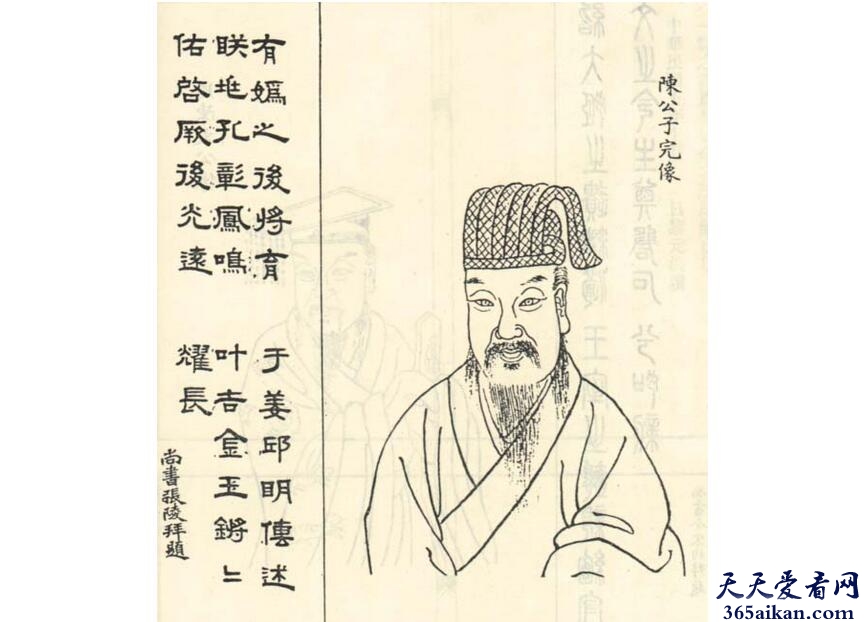 陳公子完像
有嬀之後將育 于姜邱明傳述
昳丠孔彰鳳鳴 叶吉金玉鏘〻
佑啓厥後光遠 燿長
尚書張陵拜題
天天爱看网
365aikan.com